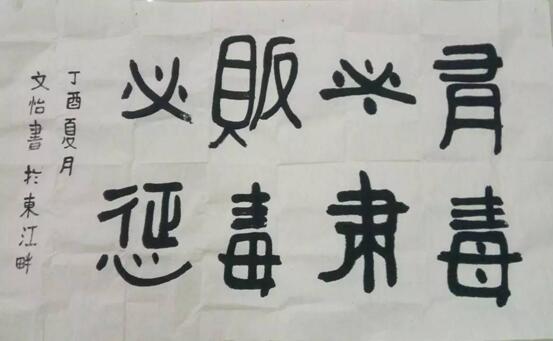 有毒
必肃
贩毒
必惩
丁酉夏月
文怡書於東江畔